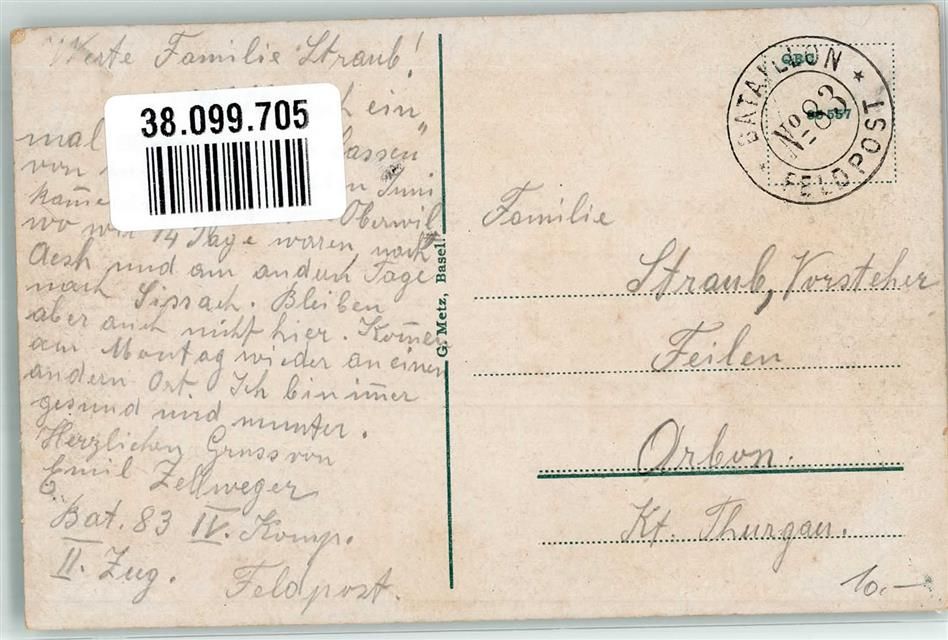 Werte Familie Straub!
ein
mal lassen"
von
kam̄e Juni
wo wir 14 Tage waren Oberwil
nach
Aesh und am andern Tage
nach Sissach. Bleiben
aber auch nicht hier. Kom̄en
am Montag wieder an einen
andern Ort. Ich bin im̄er
gesund und munter.
Herzlichen Gruss von
Emil Zellweger
Bat. 83 IV. Komp.
II. Zug. Feldpost.
38.099.705
G. Metz, Basel.
BATAILLON
No. 83
FELDPOST
Familie
Straub, Vorsteher
Feilen
Arbon.
Kt. Thurgau.
10.—